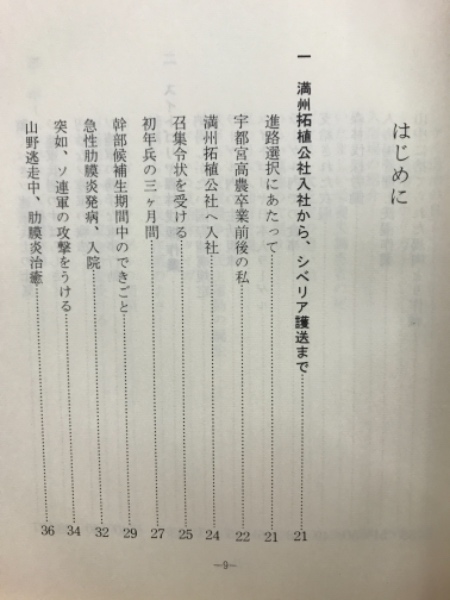 はじめに
一　満州拓植公社入社から、シベリア護送まで……………21
進路選択にあたって……………21
宇都宮高農卒業前後の私……………22
満州拓植公社へ入社……………24
召集令状を受ける……………25
初年兵の三ヶ月間……………27
幹部候補生期間中のできごと……………29
急性肋膜炎発病、入院……………32
突如、ソ連軍の攻撃をうける……………34
山野逃走中、肋膜炎治癒……………36
―9―